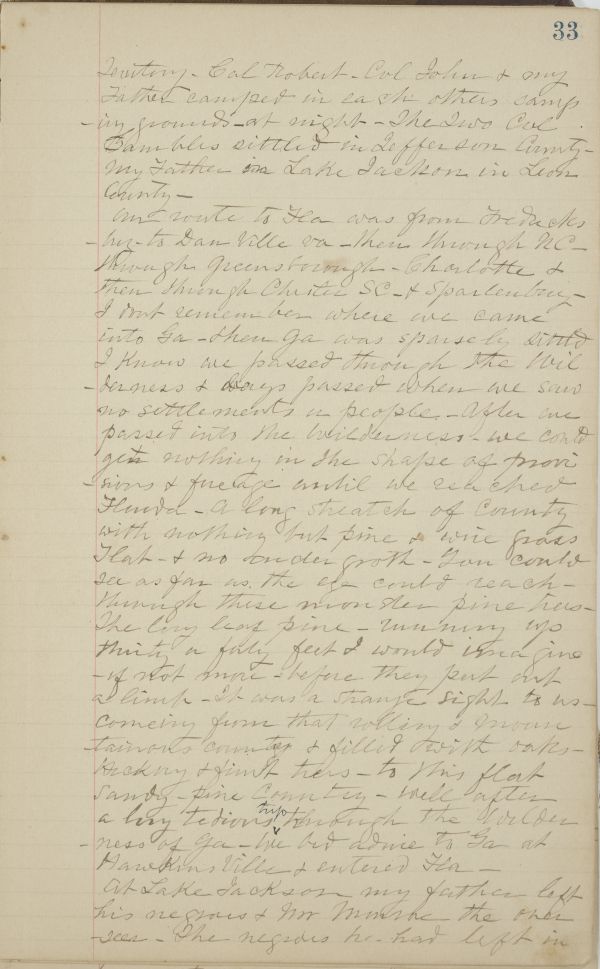 33
Territory - Col Robert - Col John & my
Father camped in each others camp
-ing grounds - at night - The Two Col
Gambles sittled in Jefferson County -
My Father in Lake Jackson in Leon
County -
Our route to Fla was from Fredricks
-burg - to Dan Ville va - then through NC -
through Greensborough - Charlotte &
then through Chester SC - & Spartenburg -
I dont remember where we came
into Ga - then Ga was sparsely sittld
I know we passed through the Wil
-derness & days passed when we saw
no settlements or people - After we
passed into the Wilderness - we could
get nothing in the shape of provi
-sions & forage until we reached
Florida - A long streatch of County
with nothing but pine & wire grass
Flat - & no undergroth - You could
see as far as the eye could reach -
through these monster pine trees -
The long leaf pine - running up
thirty or forty feet I would imagine
- if not more - before they put out
a limb - It was a strange sight to us -
comeing from that rolling & moun
-tainous country & filled with oaks -
Hickory & fruit trees - to this flat
sandy - pine Country - well after
a long tedious trip through the Wilder
-ness of Ga - We bid adieu to Ga at
HawkinsVille & entered Fla -
At Lake Jackson my father left
his negroes & Mr Munroe the over
-seer - The negroes he had left in